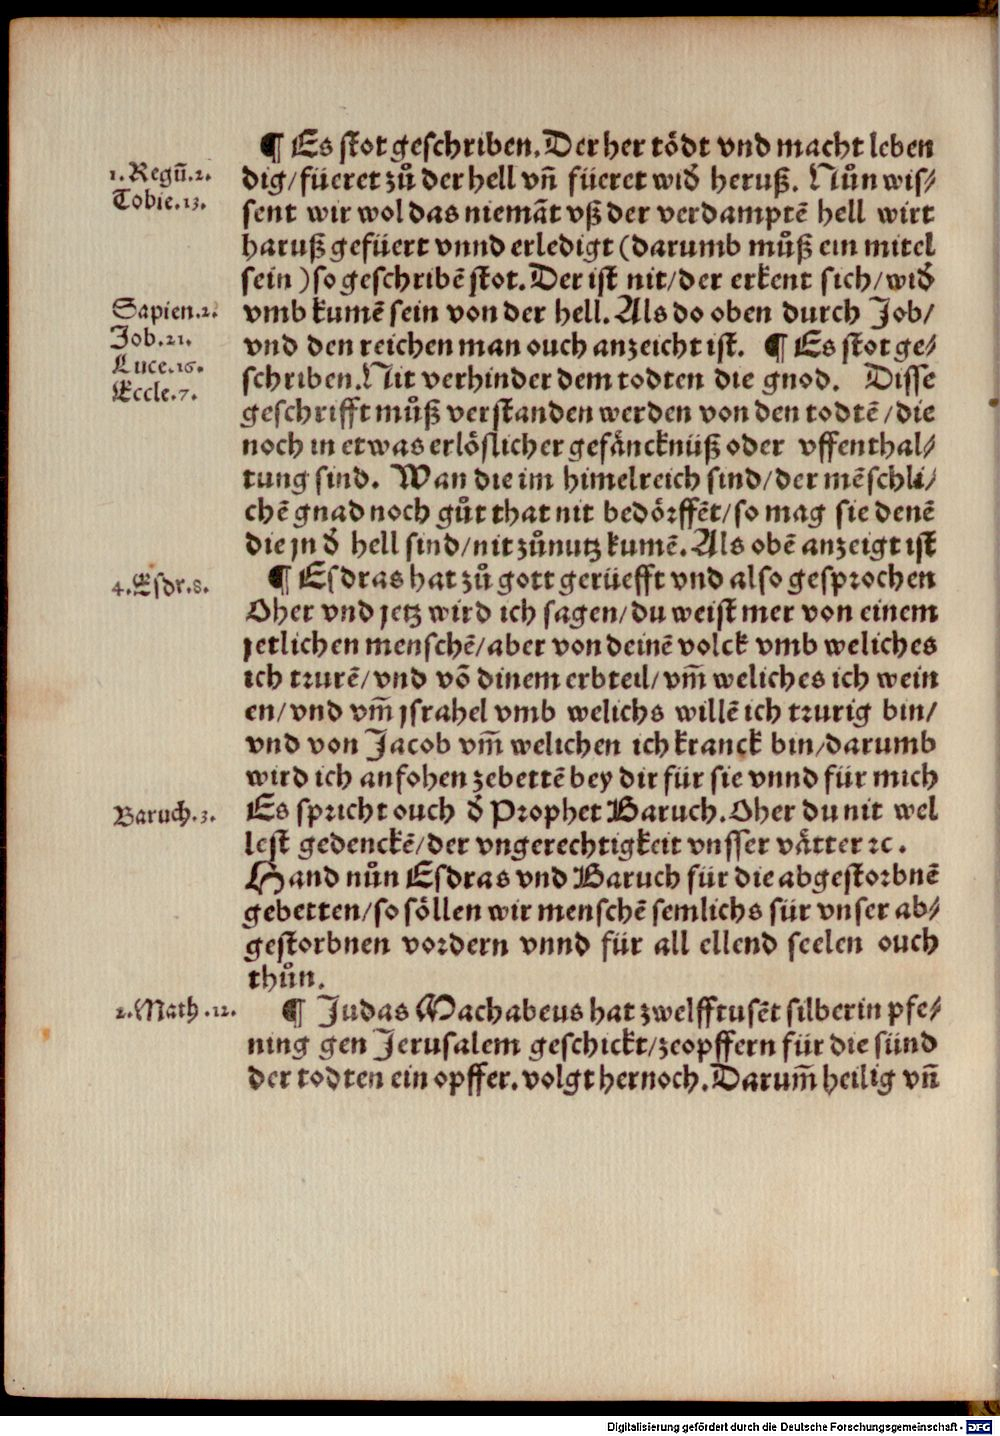 ¶ Es stot geschriben. Der her tödt vnd macht leben
1. Regū. 2.
dig/füeret zů der hell vñ füeret wiđ heruß. Nůn wis/
Tobie. 13.
sent wir wol das niemāt vß der verdamptē hell wirt
haruß gefüert vnnd erledigt (darumb můß ein mitel
sein) so geschribē stot. Der ist nit/der erkent sich/wiđ
Sapien. 2.
vmb kumē sein von der hell. Als do oben durch Job/
Job. 21.
vnd den reichen man ouch anzeicht ist. ¶ Es stot ge/
Luce. 16.
schriben. Nit verhinder dem todten die gnod. Disse
Eccle. 7.
geschrifft můß verstanden werden von den todtē/die
noch in etwas erlöslicher gefänncknüß oder vffenthal/
tung sind. Wan die im himelreich sind/der mēschli/
chē gnad noch gůt that nit bedörffēt/so mag sie denē
die jn đ hell sind/nit zůnutz kumē. Als obē anzeigt ist
4. Esdr. 8.
¶ Esdras hat zů gott gerüefft vnd also gesprochen
Oher vnd jetz wird ich sagen/du weist mer von einem
jetlichen menschē/aber von deinē volck vmb weliches
ich trurē/vnd vō dinem erbteil/vm̄ weliches ich wein
en/vnd vm̄ jsrahel vmb welichs willē ich trurig bin/
vnd von Jacob vm̄ welichen ich kranck bin/darumb
wird ich anfohen zebettē bey dir für sie vnnd für mich
Baruch. 3.
Es spricht ouch đ Prophet Baruch. Oher du nit wel
lest gedenckē/der vngerechtigkeit vnsser vätter ꝛc.
Hand nůn Esdras vnd Baruch für die abgestorbnē
gebetten/so söllen wir menschē semlichs für vnser ab/
gestorbnen vordern vnnd für all ellend seelen ouch
thůn.
2. Math. 12.
¶ Judas Machabeus hat zwelfftusēt silberin pfe/
ning gen Jerusalem geschickt/zeopffern für die sünd
der todten ein opffer. volgt hernoch. Darum̄ heilig vñ
Digitalisierung gefördert durch die Deutsche Forschungsgemeinschaft - DFG